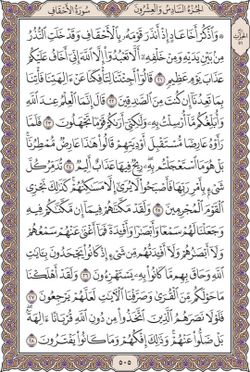 الجزء السادس والعشرون سورة الأحقاف
۞ وَاذْكُرْ أَخَا عَادٍ إِذْ أَنذَرَ قَوْمَهُ بِالْأَحْقَافِ وَقَدْ خَلَتِ النُّذُرُ
مِنْ بَيْنِ يَدَيْهِ وَمِنْ خَلْفِهِ أَلَّا تَعْبُدُوا إِلَّا اللَّهَ إِنِّي أَخَافُ عَلَيْكُمْ
عَذَابَ يَوْمٍ عَظِيمٍ ٢١ قَالُوا أَجِئْتَنَا لِتَأْفِكَنَا عَنْ آلِهَتِنَا فَأْتِنَا
بِمَا تَعِدُنَا إِن كُنتَ مِنَ الصَّادِقِينَ ٢٢ قَالَ إِنَّمَا الْعِلْمُ عِندَ اللَّهِ
وَأُبَلِّغُكُم مَّا أُرْسِلْتُ بِهِ وَلَكِنِّي أَرَاكُمْ قَوْمًا تَجْهَلُونَ ٢٣ فَلَمَّا
رَأَوْهُ عَارِضًا مُّسْتَقْبِلَ أَوْدِيَتِهِمْ قَالُوا هَذَا عَارِضٌ مُّمْطِرُنَا
بَلْ هُوَ مَا اسْتَعْجَلْتُم بِهِ رِيحٌ فِيهَا عَذَابٌ أَلِيمٌ ٢٤ تُدَمِّرُ كُلَّ
شَيْءٍ بِأَمْرِ رَبِّهَا فَأَصْبَحُوا لَا يُرَى إِلَّا مَسَاكِنُهُمْ كَذَلِكَ نَجْزِي
الْقَوْمَ الْمُجْرِمِينَ ٢٥ وَلَقَدْ مَكَّنَّاهُمْ فِيمَا إِن مَّكَّنَّاكُمْ فِيهِ
وَجَعَلْنَا لَهُمْ سَمْعًا وَأَبْصَارًا وَأَفْئِدَةً فَمَا أَغْنَى عَنْهُمْ سَمْعُهُمْ
وَلَا أَبْصَارُهُمْ وَلَا أَفْئِدَتُهُم مِّن شَيْءٍ إِذْ كَانُوا يَجْحَدُونَ بِآيَاتِ
اللَّهِ وَحَاقَ بِهِم مَّا كَانُوا بِهِ يَسْتَهْزِئُونَ ٢٦ وَلَقَدْ أَهْلَكْنَا
مَا حَوْلَكُم مِّنَ الْقُرَى وَصَرَّفْنَا الْآيَاتِ لَعَلَّهُمْ يَرْجِعُونَ ٢٧
فَلَوْلَا نَصَرَهُمُ الَّذِينَ اتَّخَذُوا مِن دُونِ اللَّهِ قُرْبَانًا آلِهَةً
بَلْ ضَلُّوا عَنْهُمْ وَذَلِكَ إِفْكُهُمْ وَمَا كَانُوا يَفْتَرُونَ ٢٨
٥٠٥